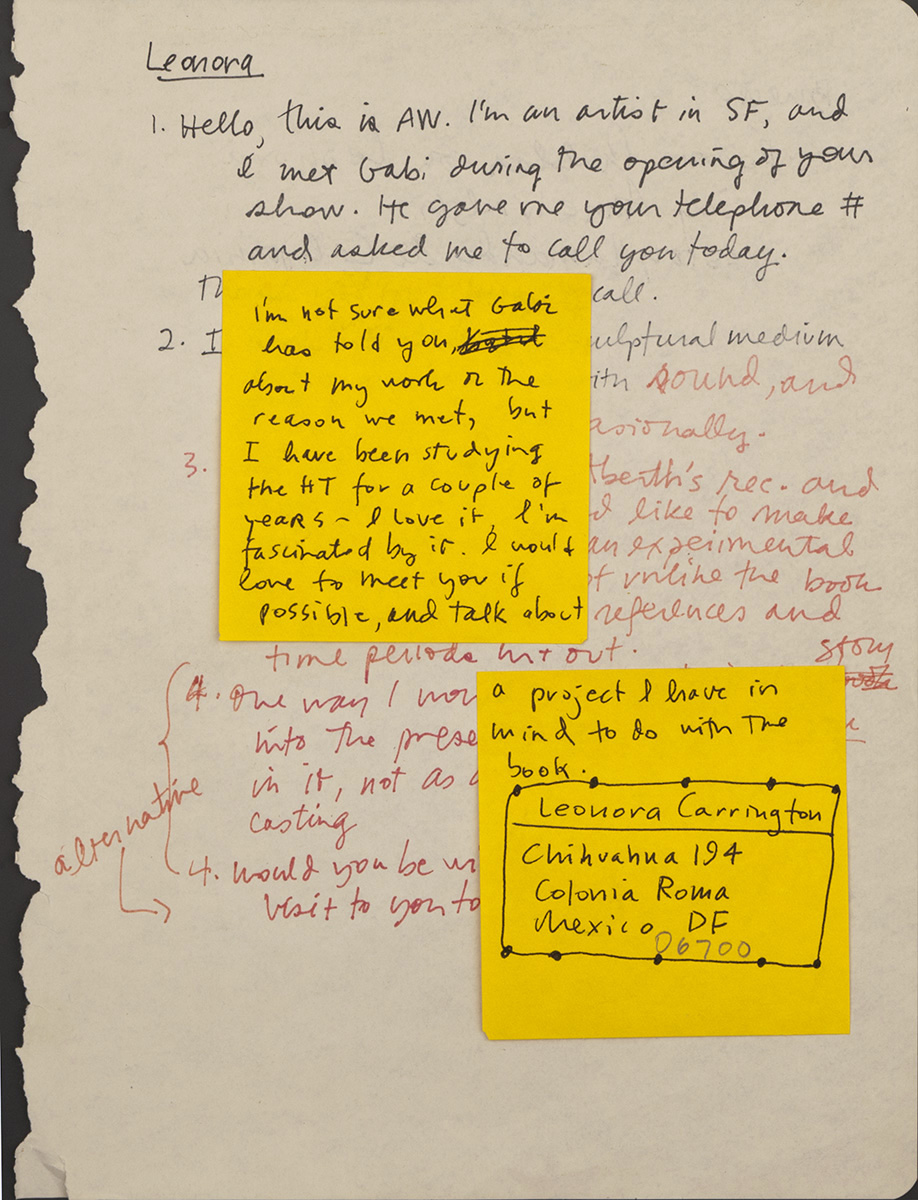 Leonora
1. Hello, this is AW. I'm an artist in SF, and
I met Gabi during the opening of your
show. He gave me your telephone #
and asked me to call you today.
call.
2. I
medium
sound, and
3.
rec. and
like to make
an expeimental
unlike the book
references and
time periods out.
story
4. One way I
into the
in it, not as
casting
alternative
4. Would you be
visit to you to
I'm not sure what Gabi
has told you,
about my work or the
reason we met, but
I have been studying
the HT for a couple of
years - I love it, I'm
fascinated by it. I would
love to meet you if
possible, and talk about
a project I have in
mind to do with the
book.
Leonora Carrington
Chihuahua 194
Colonia Roma
Mexico DF
06700